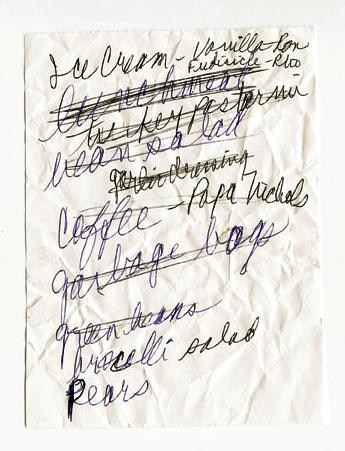 Ice Cream - Vanilla - Ron
Fudgsicle - Rbo
lunchmeat
turkey pastrami
bean salad
dressing
coffee - Papa Nichols
garbage bags
green beans
brocolli salad
Pears